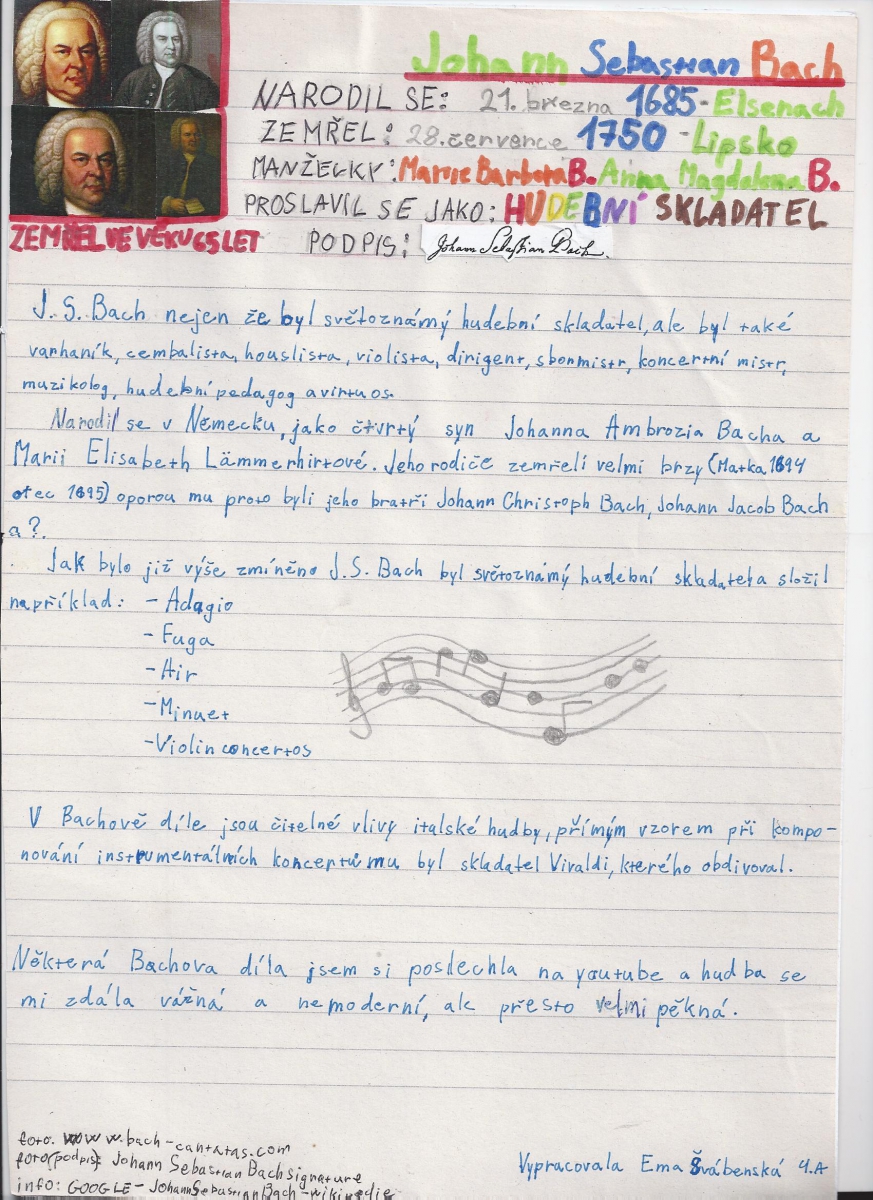 Johann Sebastian Bach
NARODIL SE: 21. března 1685 - Eisenach
ZEMŘEL: 28. července 1750 - Lipsko
MANŽELKY: Marie Barbora B. Anna Magdalena B.
PROSLAVIL SE JAKO: HUDEBNÍ SKLADATEL
ZEMŘEL VE VĚKU 65 LET
PODPIS: Johann Sebastian Bach.
J. S. Bach nejen že byl světoznámý hudební skladatel, ale byl také
varhaník, cembalista, houslista, violista, dirigent, sbormistr, koncertní mistr,
muzikolog, hudební pedagog a virtuos.
Narodil se v Německu, jako čtvrtý syn Johanna Ambrozia Bacha a
Marii Elisabeth Lämmerhirtové. Jeho rodiče zemřelí velmi brzy (Matka 1694
otec 1695) oporou mu proto byli jeho bratři Johann Christoph Bach, Johann Jacob Bach
a?.
Jak bylo již výše zmíněno J. S. Bach byl světoznámý hudební skladatel a složil
například: - Adagio
- Fuga
- Air
- Minuet
- Violin concertos
V Bachově díle jsou čitelné vlivy italské hudby, přímým vzorem při kompo-
nování instrumentálních koncertů mu byl skladatel Vivaldi, kterého obdivoval.
Některá Bachova díla jsem si poslechla na youtube a hudba se
mi zdála vážná a nemoderní, ale přesto velmi pěkná.
foto: www.bach-cantatas.com
foto(podpis): Johann Sebastian Bach signature
info: GOOGLE - Johann Sebastian Bach - wikipedie
Vypracovala Ema Švábenská 4.A